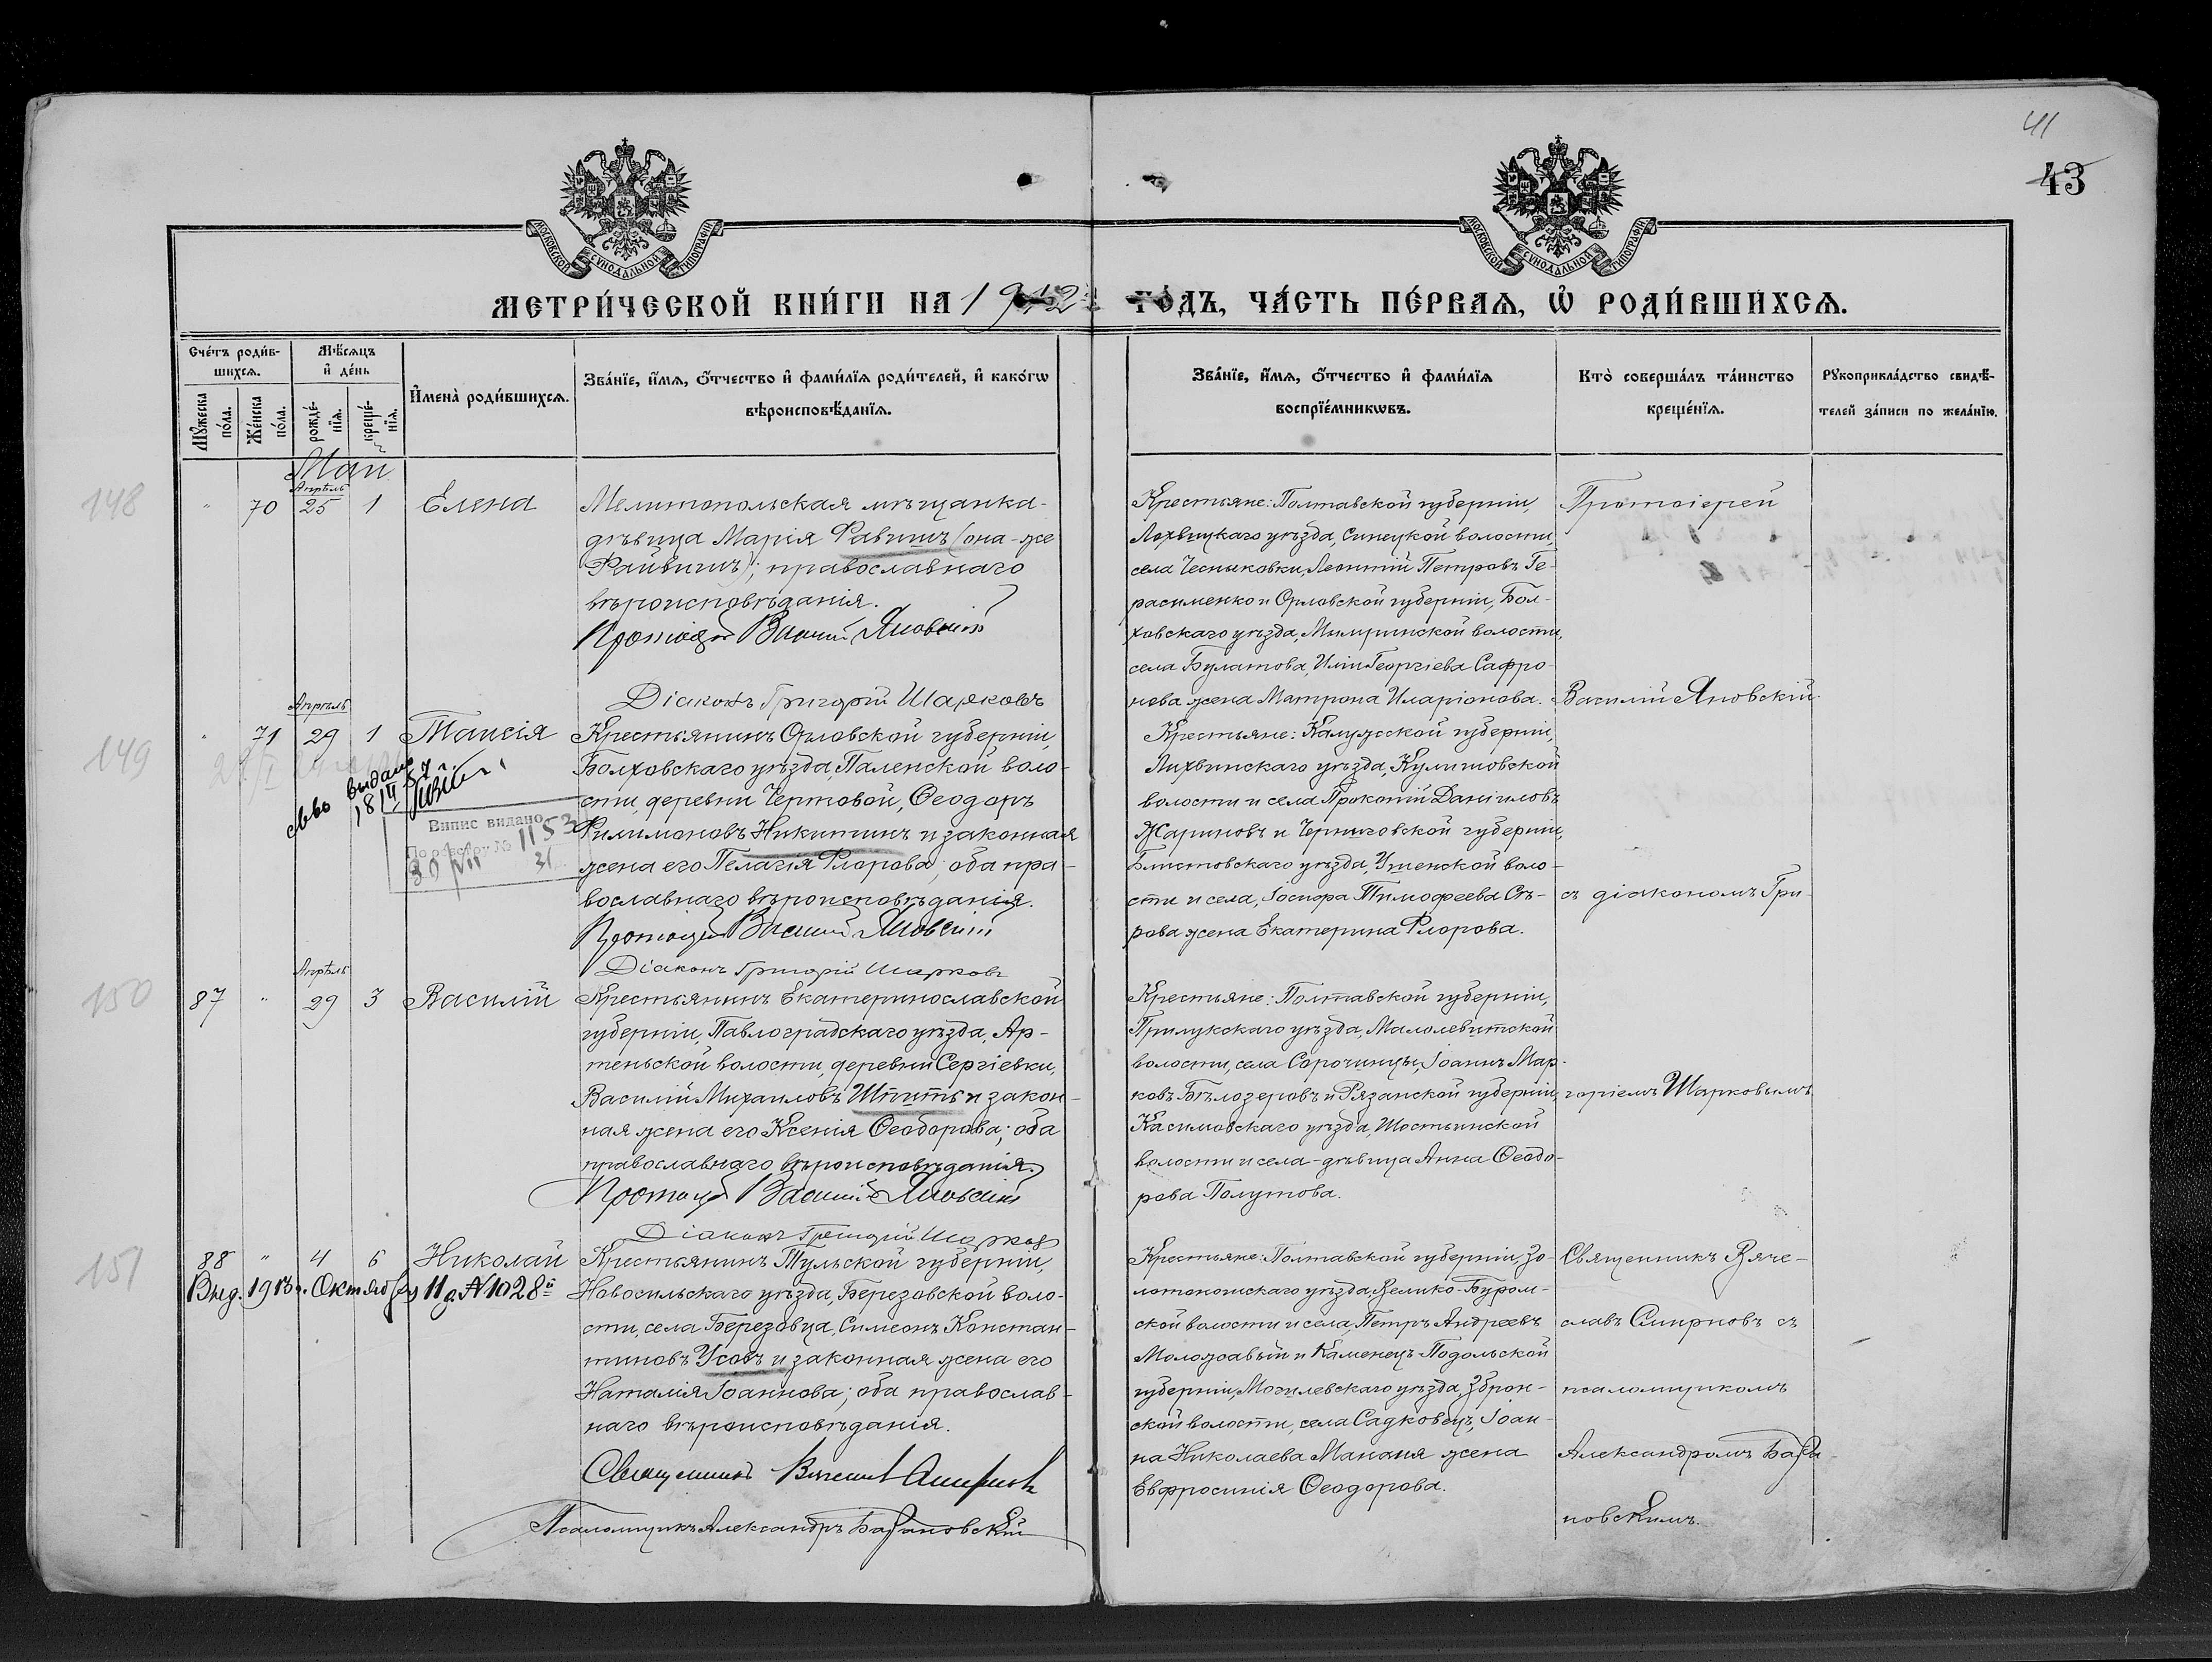 41
43
МОСКОВСКОЙ СѴНОДАЛЬНОЙ ТИПОГРАФІИ
МОСКОВСКОЙ СѴНОДАЛЬНОЙ ТИПОГРАФІИ
МЕТРИ́ЧЕСКОЙ КНИ́ГИ НА 1912 ГО́ДЪ, ЧА́СТЬ ПЕ́РВАѦ, Ѡ҆ РОДИ́ВШИХСѦ.
Сче́тъ роди́вшихсѧ.
Мꙋ́жеска по́ла.
Же́нска по́ла.
Мѣ́сѧцъ и҆ де́нь
рожде́нїѧ.
креще́нїѧ.
И҆мена̀ роди́вшихсѧ.
Зва́нїе, и҆́мѧ, ѻ҆́тчество и҆ фами́лїѧ роди́телей, и҆ како́гѡ
вѣроисповѣ́данїѧ.
Зва́нїе, и҆́мѧ, ѻ҆́тчество и҆ фами́лїѧ
воспрїе́мникѡвъ.
Кто̀ соверша́лъ та́инство
креще́нїѧ.
Рꙋкоприкла́дство свидѣ́-
телей за́писи по жела́нїю.
Май
148
70
Апрѣль
25
1
Елена
Мелитопольская мѣщанка-
дѣвица Марія Равичъ (она-же
Райвичъ); православнаго
вѣроисповѣданія.
Протоіерей Василій Яновскій
Діаконъ Григорій Шарковъ
Крестьяне: Полтавской губерніи,
Лохвицкаго уѣзда, Синецкой волости,
села Чесныковки, Леонтій Петровъ Ге-
расименко и Орловской губерніи, Бол-
ховскаго уѣзда, Мымринской волости,
села Булатова, Иліи Георгіева Сафро-
нова жена Матрона Иларіонова.
Протоіерей
Василій Яновскій
149
71
Апрѣль
29
1
Таисія
св-во выдано
18/II 54 г.
Випис видано
По реєстру № 1153
30/VII 31
Крестьянинъ Орловской губерніи,
Болховскаго уѣзда, Паленской воло-
сти, деревни Чертовой, Ѳеодоръ
Филимоновъ Никитинъ и законная
жена его Пелагія Флорова; оба пра-
вославнаго вѣроисповѣданія.
Протоіерей Василій Яновскій
Діаконъ Григорій Шарковъ
Крестьяне: Калужской губерніи,
Лихвинскаго уѣзда, Кулишовской
волости и села Прокопій Даніиловъ
Жариновъ и Черниговской губерніи,
Блистовскаго уѣзда, Уменской воло-
сти и села, Іосифа Тимофеева Сѣ-
рова жена Екатерина Флорова.
съ діакономъ Гри-
150
87
Апрѣль
29
3
Василій
Крестьянинъ Екатеринославской
губерніи, Павлоградскаго уѣзда, Ар-
теньской волости, деревни Сергіевки,
Василій Михаиловъ Шпить и закон-
ная жена его Ксенія Ѳеодорова; оба
православнаго вѣроисповѣданія.
Протоіерей Василій Яновскій
Діаконъ Григорій Шарковъ
Крестьяне: Полтавской губерніи,
Прилукскаго уѣзда, Малолевитской
волости, села Сорочинцы, Іоаннъ Мар-
ковъ Бѣлозеровъ и Рязанской губерніи,
Касимовскаго уѣзда, Шостьинской
волости и села - дѣвица Анна Ѳеодо-
рова Полутова.
горіемъ Шарковымъ
151
88
4
6
Николай
Выд. 1913 г. Октября 11 д. № 1028
Крестьянинъ Тульской губерніи,
Новосильскаго уѣзда, Березовской воло-
сти, села Березовца, Симеонъ Констан-
тиновъ Усовъ и законная жена его
Наталія Іоаннова; оба православ-
наго вѣроисповѣданія.
Священникъ Вячеславъ Смирновъ
Псаломщикъ Александръ Барановскій
Крестьяне: Полтавской губерніи, Зо-
лотоношскаго уѣзда, Велико-Буром-
ской волости и села, Петръ Андреевъ
Моложавый и Каменецъ-Подольской
губерніи, Могилевскаго уѣзда,
ской волости, села Садковецъ, Іоан-
на Николаева Маканя жена
Евфросинія Ѳеодорова.
Священникъ Вяче-
славъ Смирновъ съ
псаломщикомъ
Александромъ Бара-
новскимъ.